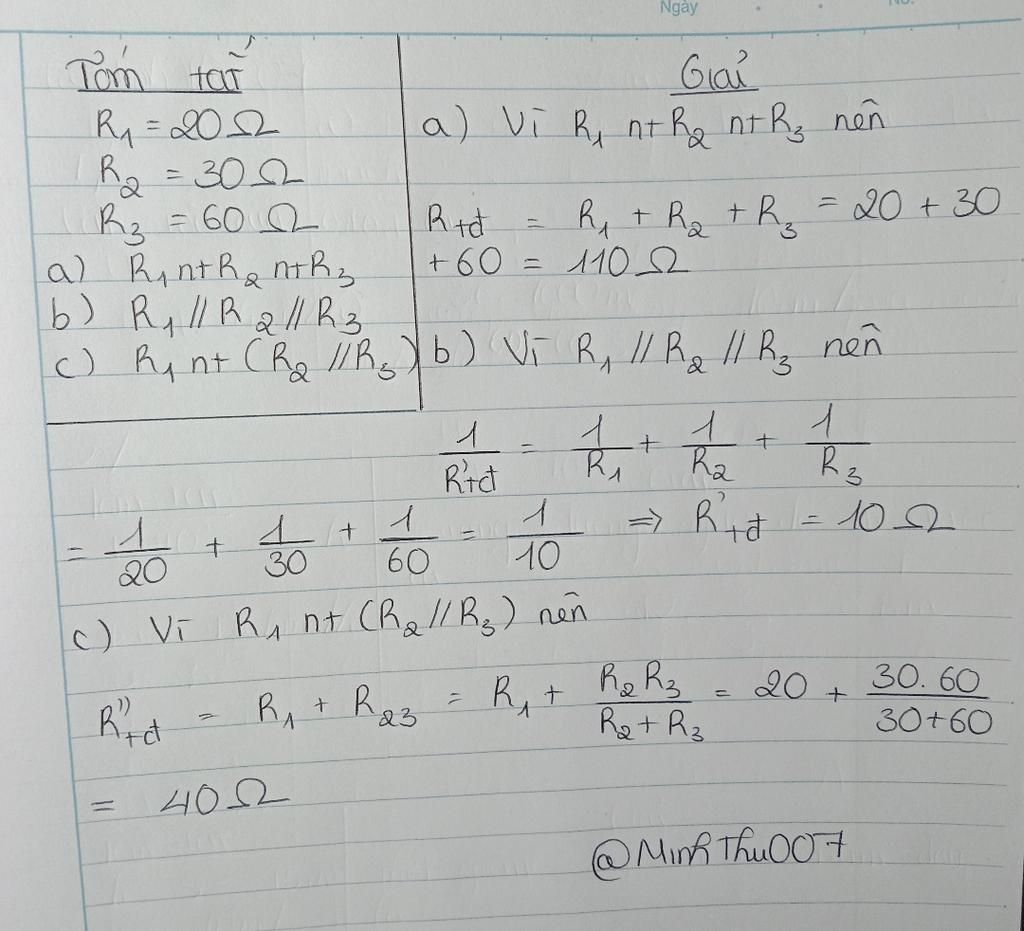 Ngày
No.
Tóm tắt
R₁ = 20 Ω
R₂ = 30 Ω
R₃ = 60 Ω
a) R₁ nt R₂ nt R₃
b) R₁ // R₂ // R₃
c) R₁ nt (R₂ // R₃)
Giải
a) Vì R₁ nt R₂ nt R₃ nên
Rtđ = R₁ + R₂ + R₃ = 20 + 30
+ 60 = 110 Ω
b) Vì R₁ // R₂ // R₃ nên
1/R'tđ = 1/R₁ + 1/R₂ + 1/R₃
= 1/20 + 1/30 + 1/60 = 1/10 => R'tđ = 10 Ω
c) Vì R₁ nt (R₂ // R₃) nên
R''tđ = R₁ + R₂₃ = R₁ + R₂R₃/R₂ + R₃ = 20 + 30.60/30+60
= 40 Ω
@MinhThu007